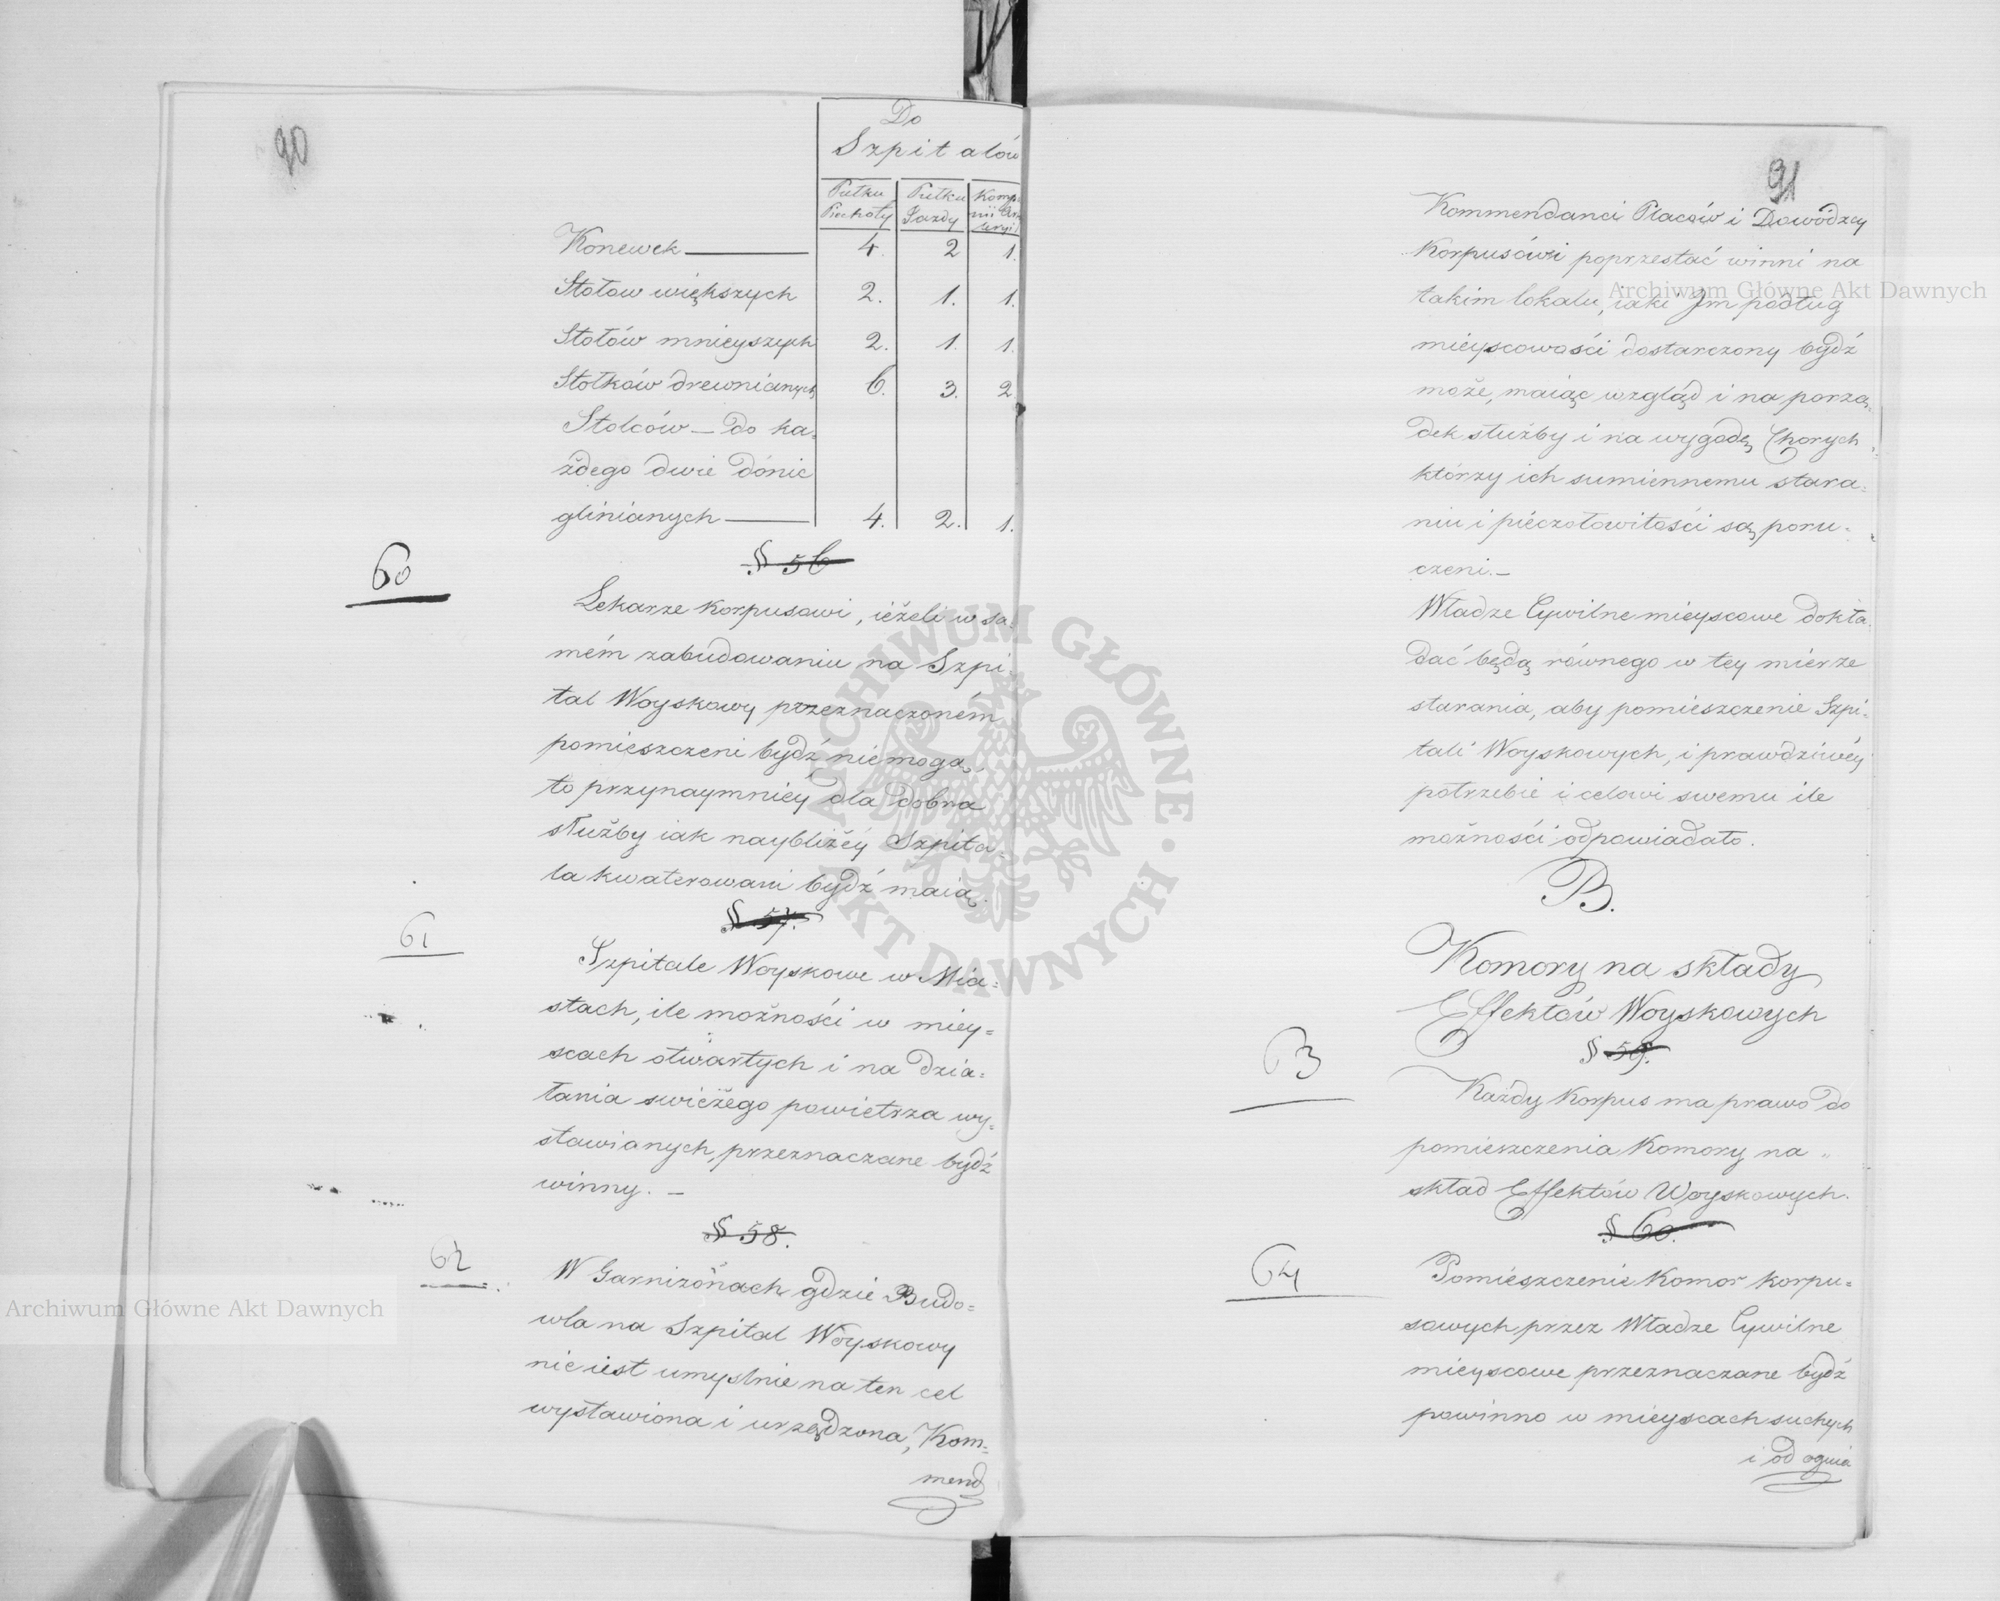 90
Do
Szpitalów
Pułku Piechoty | Pułku Jazdy | Komp: nii Ar: tyryi
Konewek — 4. 2 1.
Stołow większych 2. 1. 1.
Stołów mnieyszych 2. 1. 1.
Stołków drewnianych 6. 3. 2
Stolców — do ka:
żdego dwie dónic
glinianych — 4. 2. 1.
§ 56
60
Lekarze korpusowi, ieżeli w sa:
mém zabudowaniu na Szpi:
tal Woyskowy przeznaczoném
pomieszczeni bydź nie mogą,
to przynaymniey dla dobra
służby iak naybliżéy Szpita:
la kwaterowani bydź maią.
§ 57.
61
Szpitale Woyskowe w Mia:
stach, ile możności w miey=
scach otwartych i na dzia:
łania swiéżego powietrza wy:
stawianych, przeznaczane bydź
winny. —
§ 58.
62
W Garnizonach gdzie Budo=
wla na Szpital Woyskowy
nie iest umyslnie na ten cel
wystawiona i urządzona, Kom=
mend
91
Kommendanci Placów i Dowódzcy
Korpusówi poprzestać winni na
takim lokalu, iaki Jm podług
mieyscowości dostarczony bydź
może, maiąc wzgląd i na porzą:
dek służby i na wygodę Chorych
którzy ich sumiennemu stara=
niu i pieczołowitości są poru=
czeni. —
Władze Cywilne mieyscowe dokła:
dać będą równego w tey mierze
starania, aby pomieszczenie Szpi=
tali Woyskowych, i prawdziwéy
potrzebie i celowi swemu ile
możności odpowiadało.
B.
Komory na składy
Effektów Woyskowych
63
§ 59.
Każdy Korpus ma prawo do
pomieszczenia Komory na „
skład Effektów Woyskowych.
§ 60.
64
Pomieszczenie Komor korpu=
sowych przez Władze Cywilne
mieyscowe przeznaczane bydź
powinno w mieyscach suchych
i od ognia
Archiwum Główne Akt Dawnych
Archiwum Główne Akt Dawnych
ARCHIWUM GŁÓWNE AKT DAWNYCH